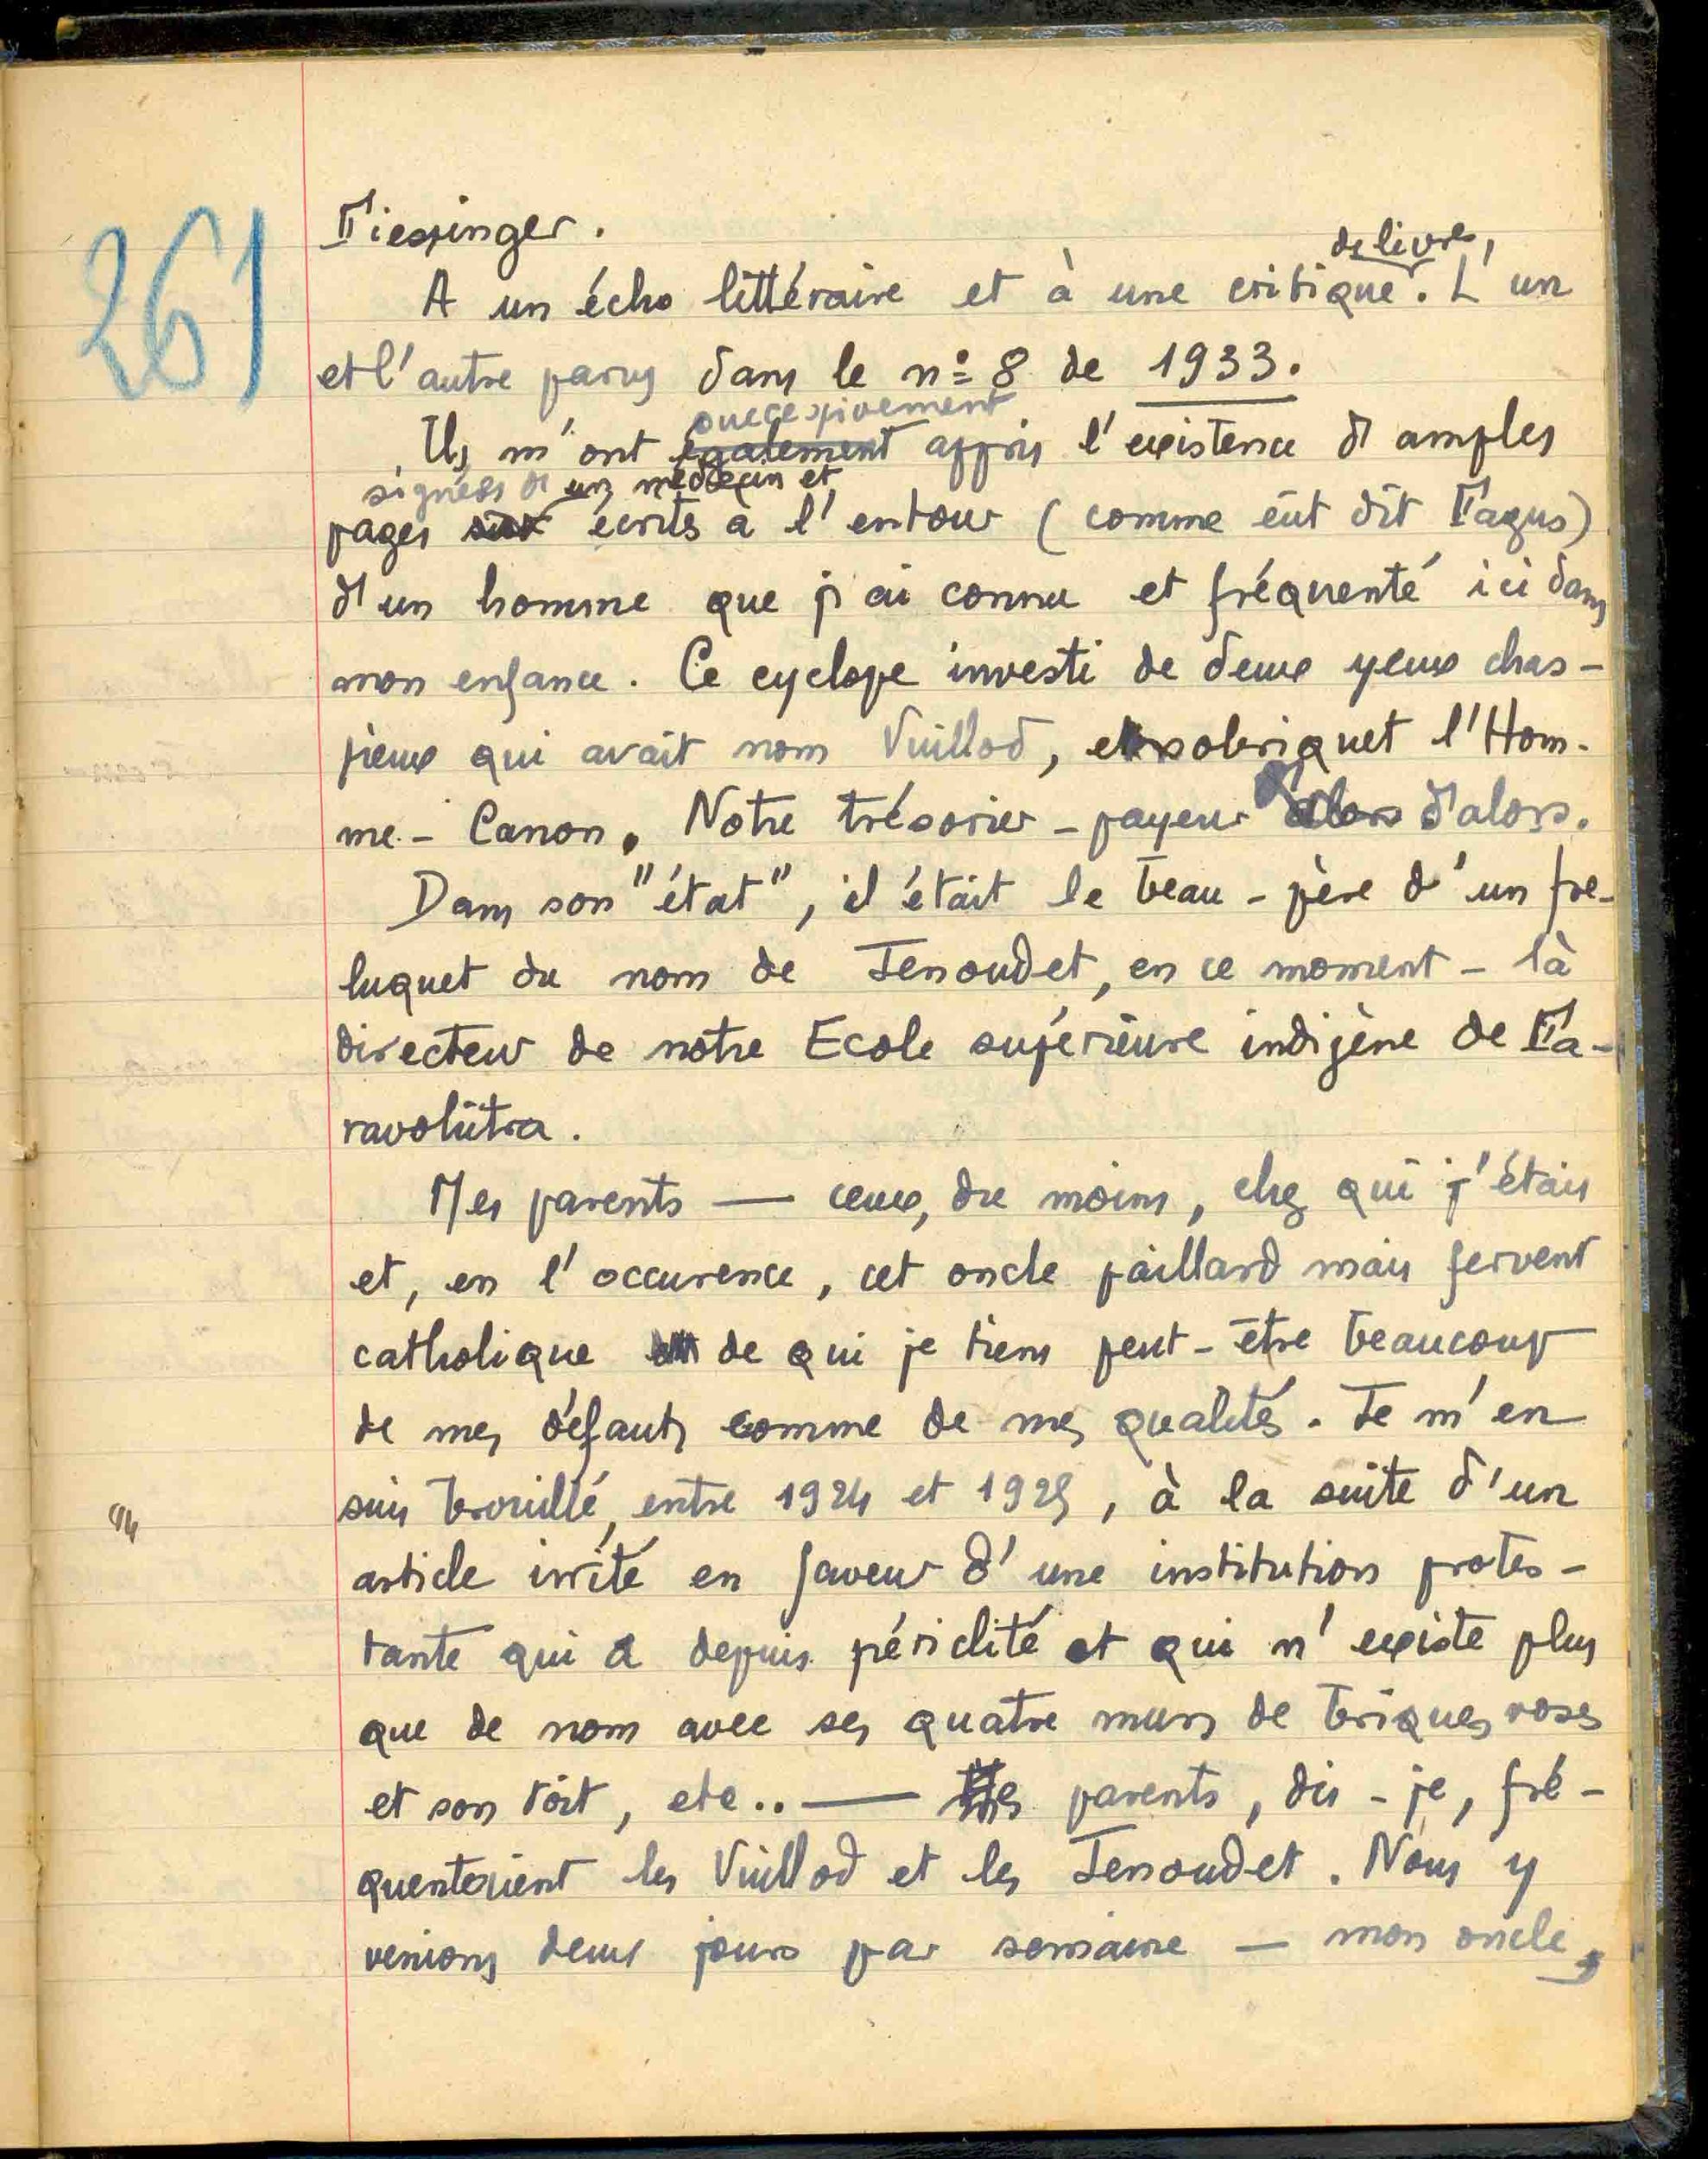 261
Fiessinger.
de livre,
A un écho littéraire et à une critique. L'un
et l'autre parus dans le nº 8 de 1933.
successivement
Ils m'ont également appris l'existence d'amples
signées d'un médecin et
pages écrites à l'entour (comme eût dit Fagus)
d'un homme que j'ai connu et fréquenté ici dans
mon enfance. Ce cyclope investi de deux yeux chas-
sieux qui avait nom Vuillod, et sobriquet l'Hom-
me-Canon. Notre trésorier-payeur alors d'alors.
Dans son "état", il était le beau-père d'un fre-
luquet du nom de Jenoudet, en ce moment-là
directeur de notre Ecole supérieure indigène de Fa-
ravohitra.
Mes parents — ceux, du moins, chez qui j'étais
et, en l'occurence, cet oncle paillard mais fervent
catholique de qui je tiens peut-être beaucoup
de mes défauts comme de mes qualités. Je m'en
suis brouillé, entre 1924 et 1925, à la suite d'un
article irrité en faveur d'une institution protes-
tante qui a depuis périclité et qui n'existe plus
que de nom avec ses quatre murs de briques roses
et son toit, etc.. — Mes parents, dis-je, fré-
quentaient les Vuillod et les Jenoudet. Nous y
venions deux jours par semaine — mon oncle,